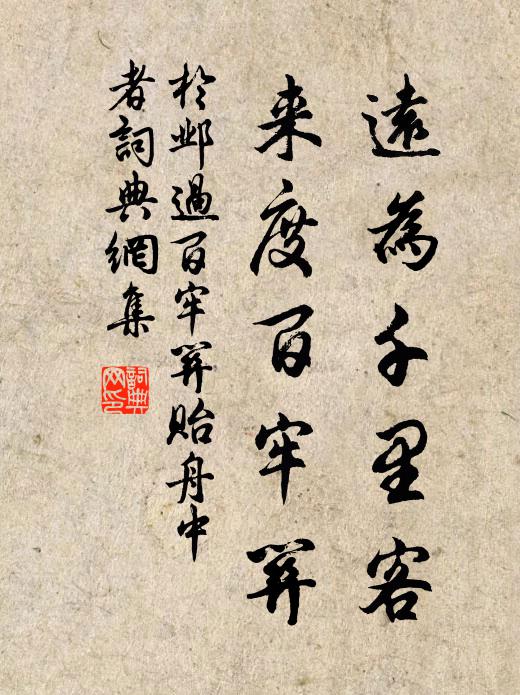 遠為千里客
来度百牢関
於邺過百牢関貽舟中
者詞典網集
詞典
网印